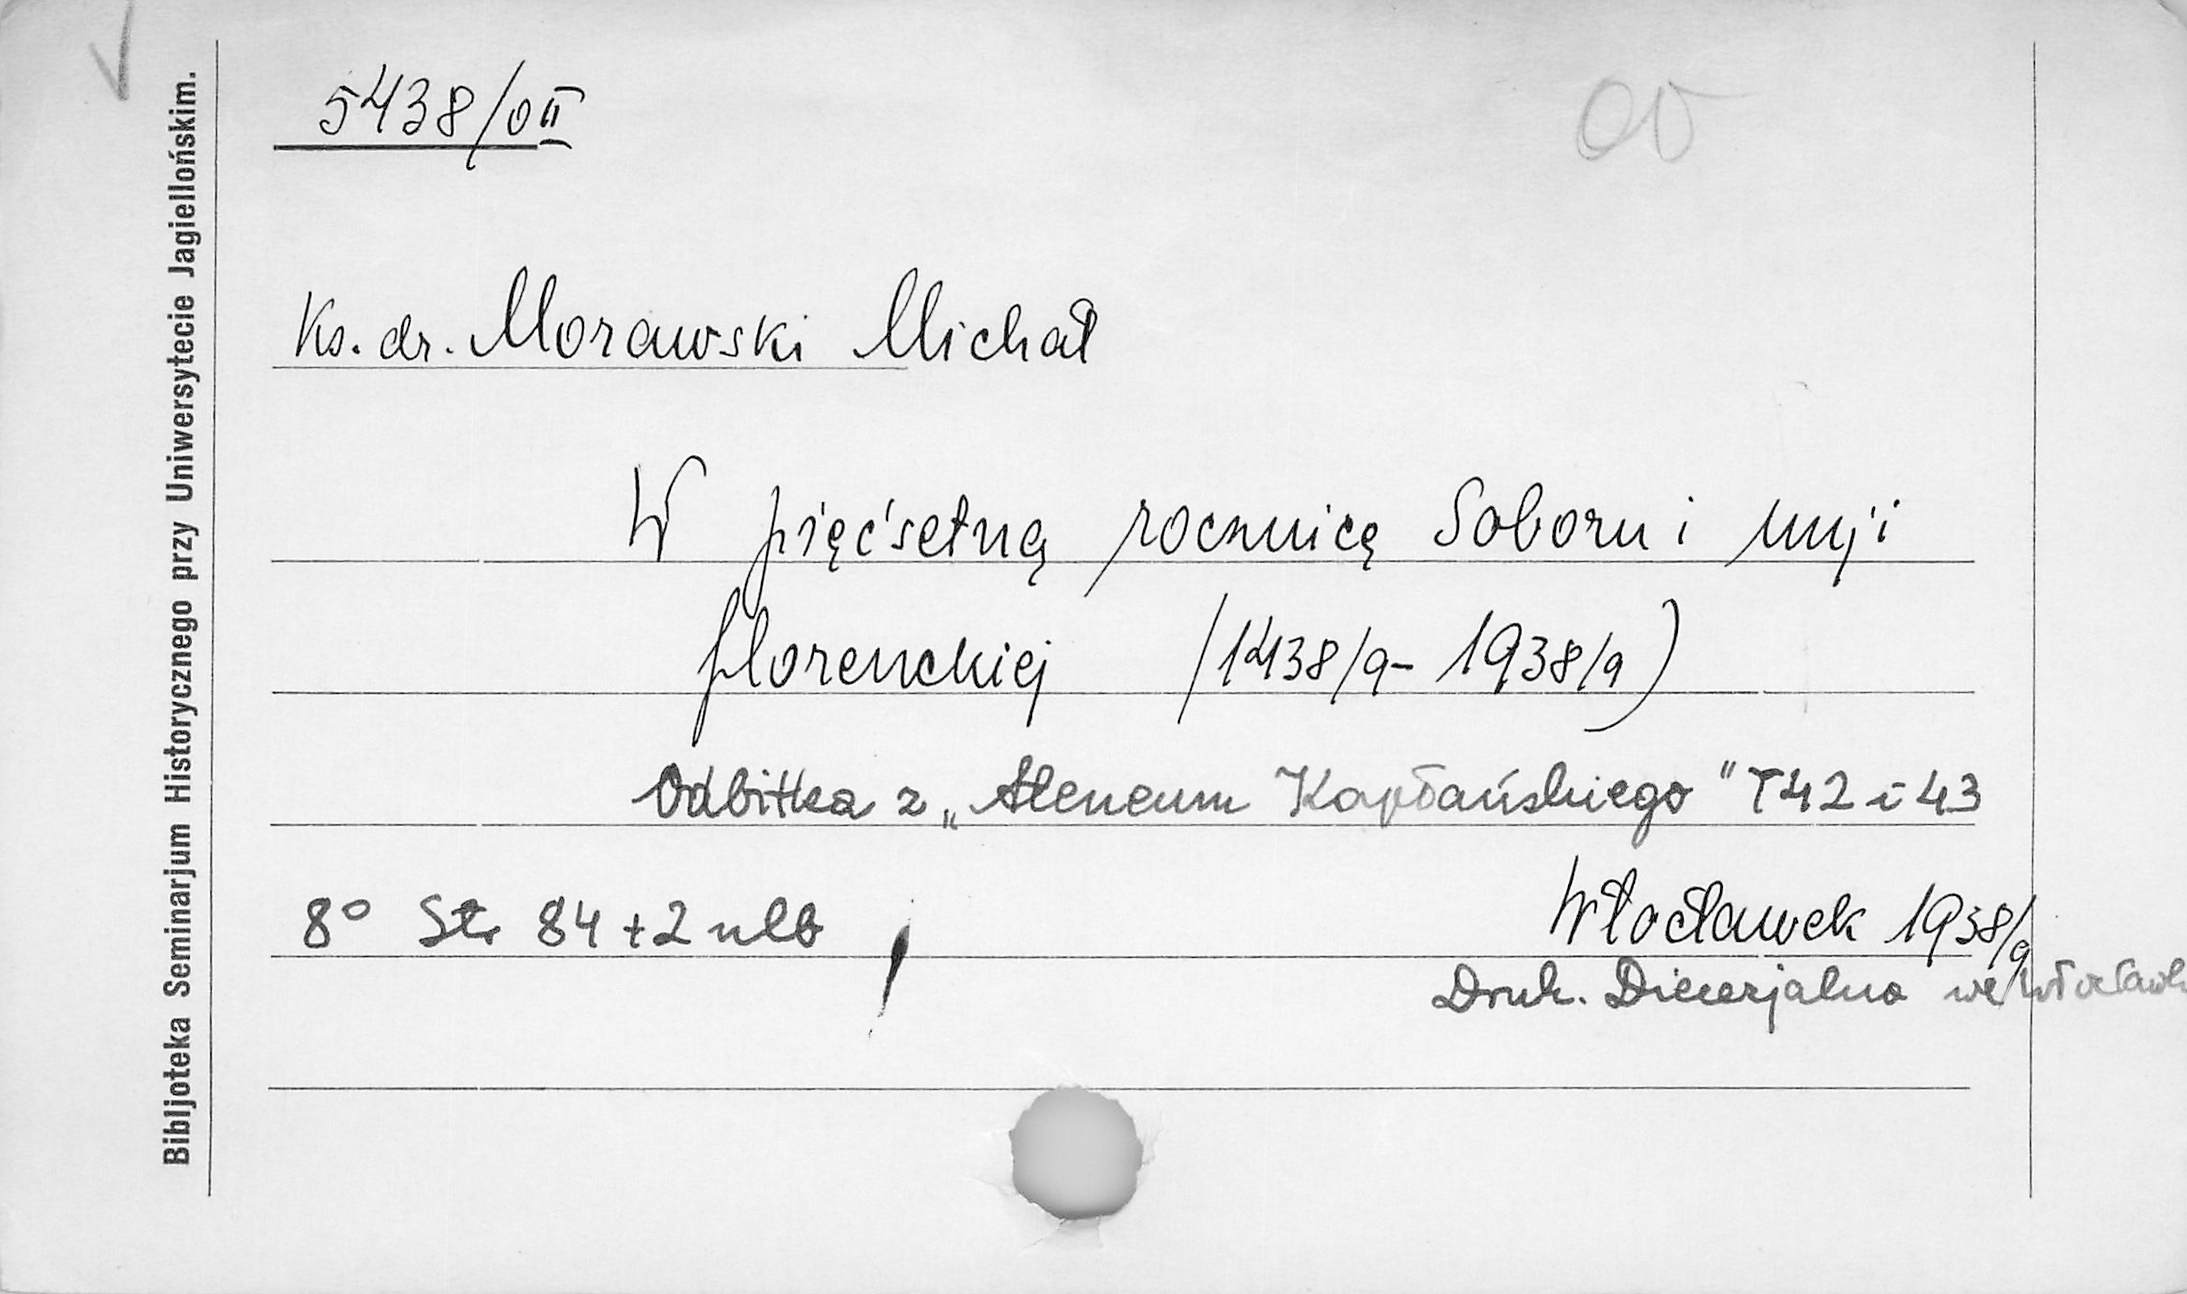 5438/0II
Bibljoteka Seminarjum Historycznego przy Uniwersytecie Jagiellońskim.
Ks. dr. Morawski Michał
W pięćsetną rocznicę Soboru i unji
florenckiej (1438/9 - 1938/9)
Odbitka z „Ateneum Kapłańskiego" T 42 i 43
Włocławek 1938/9
8° Str 84 + 2 nlb
Druk. Diecezjalna we Włocławk